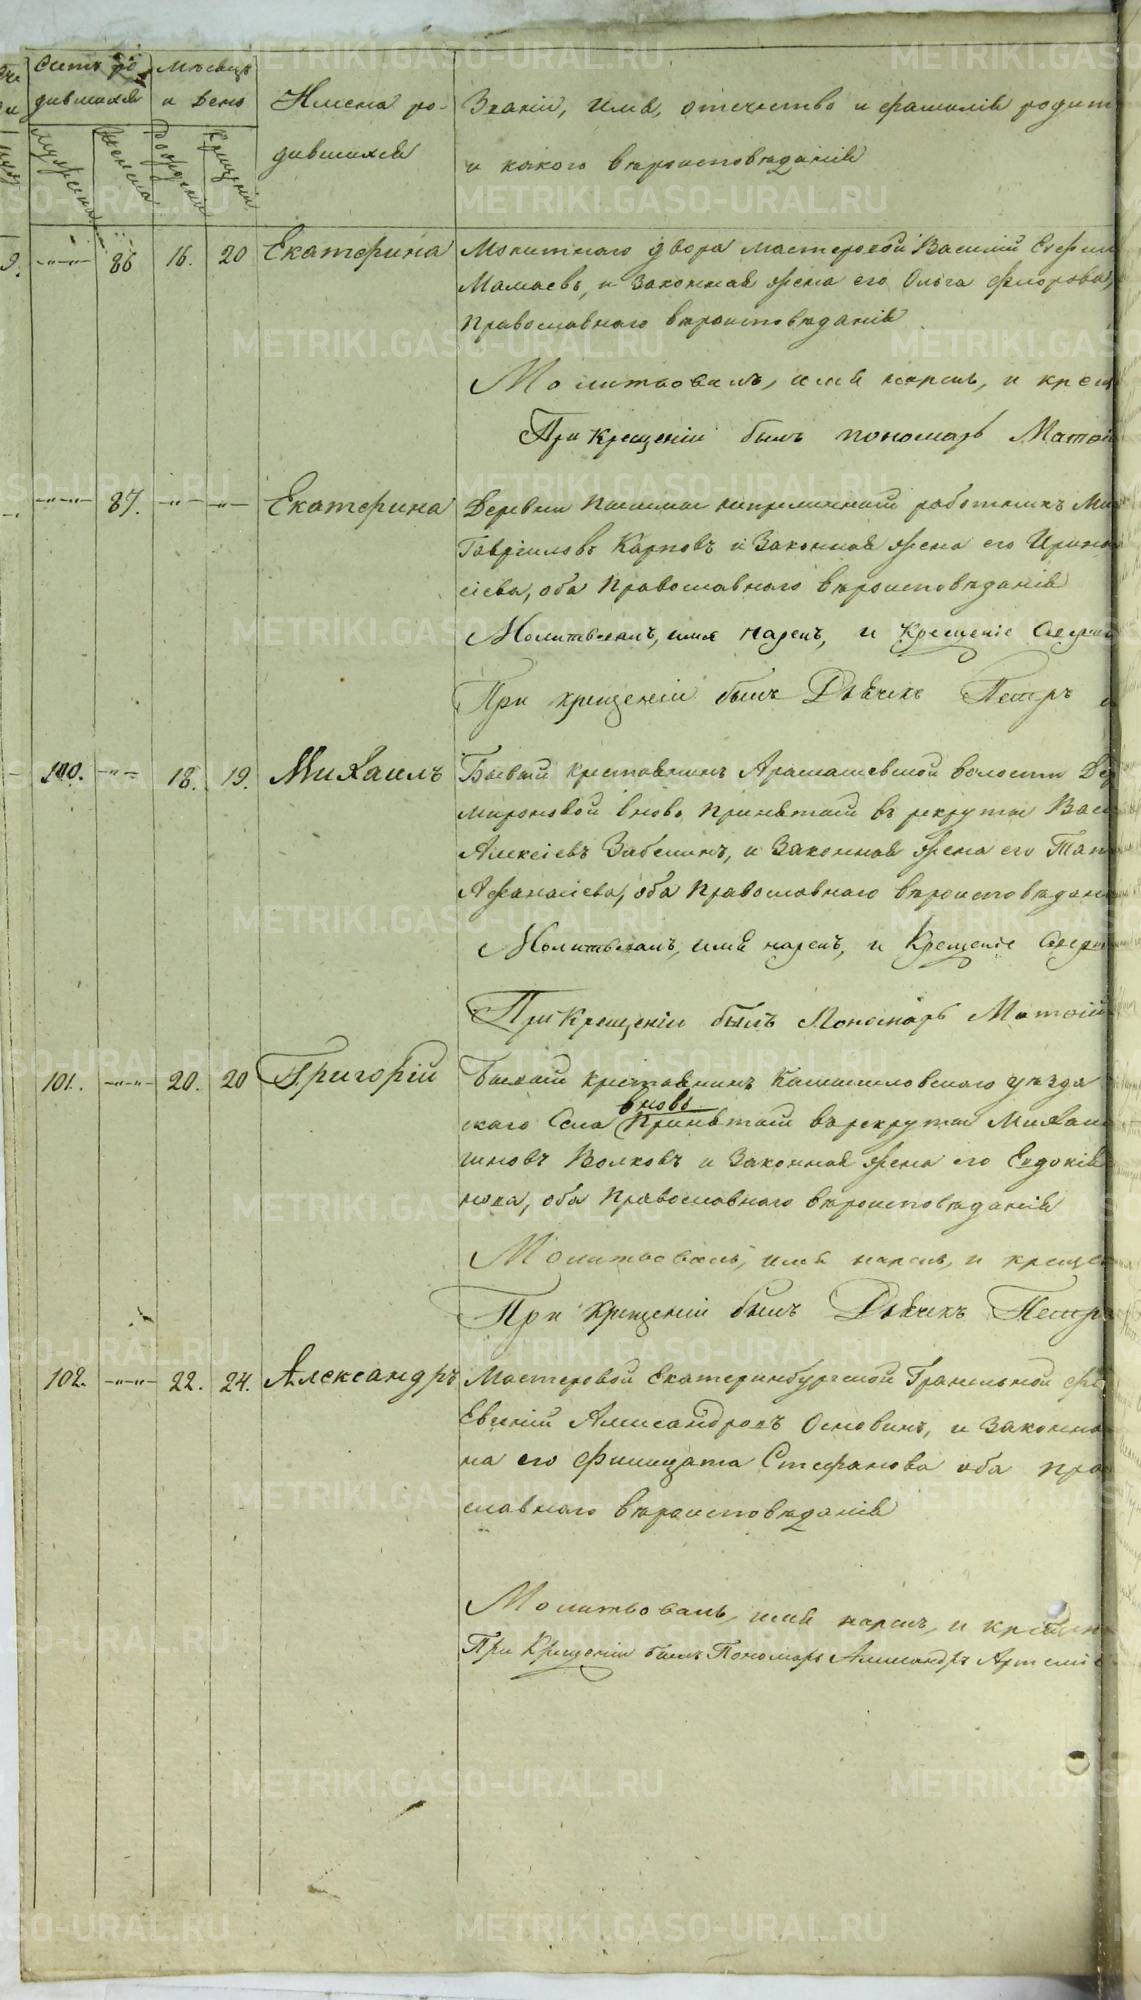 Счетъ ро
дившихся
Мѣсяцъ
и День
мужеска
женска
рожденія
крещенія
Имена ро-
дившихся
Званіе, имя, отечество и фамилія родит
и какого вѣроисповѣданія
86 16. 20 Екатерина
Монетнаго двора мастеровой Василій
Мамаевъ, и законная жена его Ольга Флорова,
Православнаго вѣроисповѣданія
Молитвовалъ, имя нарекъ, и крещ
При крещеніи былъ пономарь Матѳій
87. Екатерина
Деревни непременный работникъ
Гаврииловъ Карповъ и законная жена его Ирина
сіева, оба Православнаго вѣроисповѣданія
Молитвовалъ, имя нарекъ, и Крещеніе Соверши
При крещеніи былъ Дьячекъ Петръ
100. 18. 19. Михаилъ
Бывшій крестьянинъ Арамашевской волости Дер
мироновой вновь принятый въ рекруты Васи
Алексіевъ Забелинъ, и законная жена его Тат
Афанасіева, оба Православнаго вѣроисповѣдан
Молитвовалъ, имя нарекъ, и Крещеніе Соверш
При Крещеніи былъ Пономарь Матѳій
101. 20. 20 Григорій
Бывшій крестьянинъ Камышловскаго уѣзда
скаго Села вновь принятый въ рекруты Михаи
гиновъ Волковъ и законная жена его Евдокія
нова, оба Православнаго вѣроисповѣданія
Молитвовалъ, имя нарекъ, и креще
При Крещеніи былъ Дьячекъ Петръ
102. 22. 24. Александръ
Мастеровой Екатеринбургской Гранильной фа
Евгній Александровъ Основинъ, и законна
на его Филицата Стефанова оба пра
славнаго вѣроисповѣданія
Молитвовалъ, имя нарекъ, и крещен
При Крещеніи былъ Пономарь Александръ Артеміе
METRIKI.GASO-URAL.RU